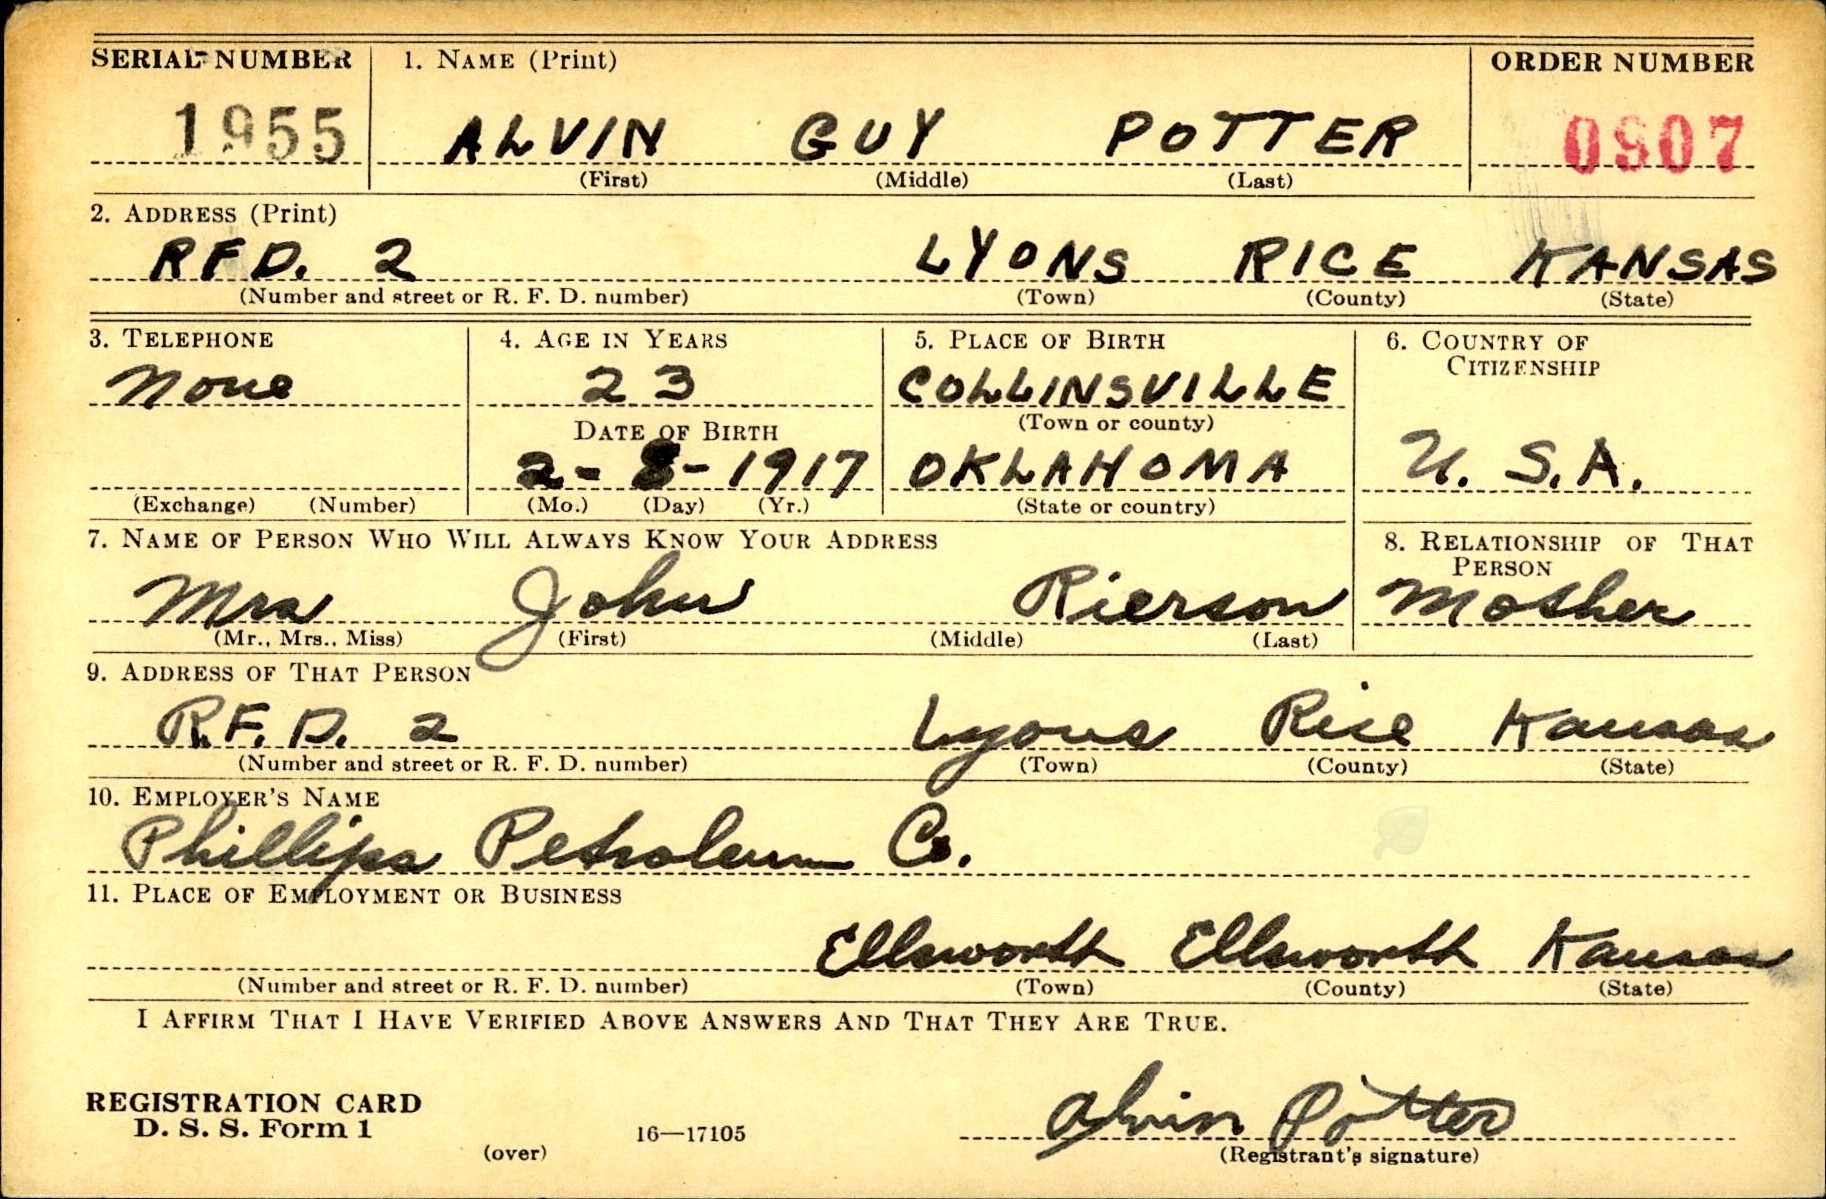 SERIAL NUMBER 1. NAME (Print) ORDER NUMBER
1955 ALVIN GUY POTTER 0907
(First) (Middle) (Last)
2. ADDRESS (Print)
RFD. 2 LYONS RICE KANSAS
(Number and street or R. F. D. number) (Town) (County) (State)
3. TELEPHONE 4. AGE IN YEARS 5. PLACE OF BIRTH 6. COUNTRY OF CITIZENSHIP
None 23 COLLINSVILLE
(Town or county)
DATE OF BIRTH
2-8-1917 OKLAHOMA U. S. A.
(Exchange) (Number) (Mo.) (Day) (Yr.) (State or country)
7. NAME OF PERSON WHO WILL ALWAYS KNOW YOUR ADDRESS 8. RELATIONSHIP OF THAT PERSON
Mrs John Rierson Mother
(Mr., Mrs., Miss) (First) (Middle) (Last)
9. ADDRESS OF THAT PERSON
R.F.D. 2 Lyons Rice Kansas
(Number and street or R. F. D. number) (Town) (County) (State)
10. EMPLOYER'S NAME
Phillips Petroleum Co.
11. PLACE OF EMPLOYMENT OR BUSINESS
Ellsworth Ellsworth Kansas
(Number and street or R. F. D. number) (Town) (County) (State)
I AFFIRM THAT I HAVE VERIFIED ABOVE ANSWERS AND THAT THEY ARE TRUE.
REGISTRATION CARD
D. S. S. Form 1 Alvin Potter
(over) 16—17105 (Registrant's signature)